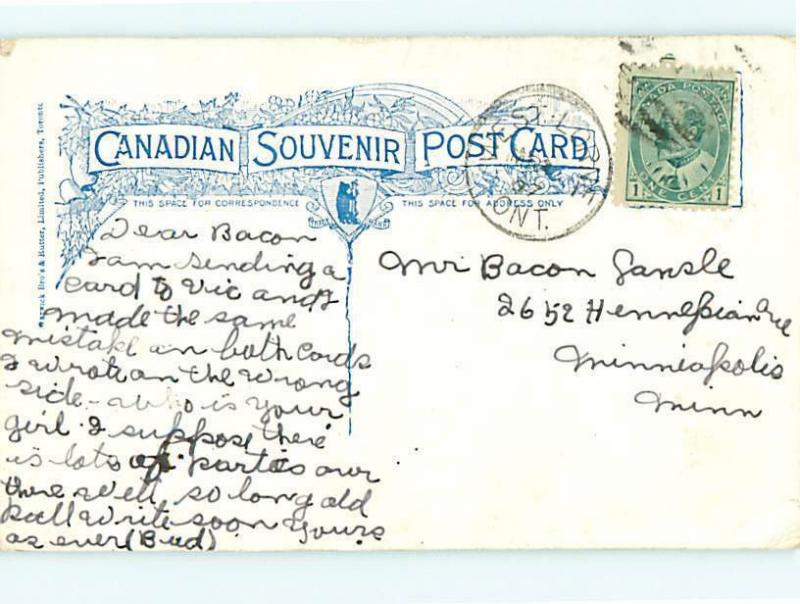 CANADIAN SOUVENIR POST CARD
THIS SPACE FOR CORRESPONDENCE
THIS SPACE FOR ADDRESS ONLY
Warwick Bro's & Rutter, Limited, Publishers, Toronto.
ONT.
CANADA POSTAGE
1 ONE CENT 1
Dear Bacon
I am sending a
card to Vic and I
made the same
mistake on both cards
I wrote on the wrong
side - who is your
girl. I suppose there
is lots of parties over
there well so long old
pall write soon yours
as ever (Bud)
Mr Bacon Gansle
2652 Hennepian Ave
Minneapolis
Minn